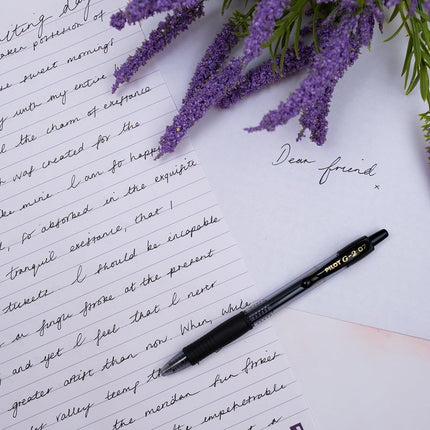 aken possession of
e sweet mornings
y with my entire
the charm of existance
was created for the
mine. I am so happy
, so absorbed in the exquisite
tranquil existance, that I
I should be incapable
a single stroke at the present
and yet I feel that I never
greater artist than now. When, while
valley teems
the meridan sun strikes
the impenetrable
Dear friend
x
PILOT G-2 07